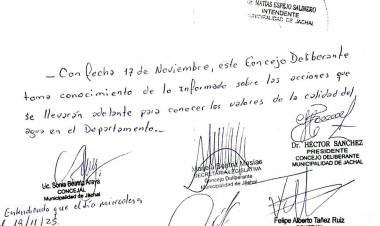 MATIAS ESPEJO SALINERO
INTENDENTE
MUNICIPALIDAD DE JACHAL
— Con fecha 17 de Noviembre, este Concejo Deliberante
toma conocimiento de lo informado sobre las acciones que
se llevarán adelante para conocer los valores de la calidad del
agua en el Departamento. —
Dr. HÉCTOR SANCHEZ
PRESIDENTE
CONCEJO DELIBERANTE
MUNICIPALIDAD DE JACHAL
SECRETARIA LEGISLATIVA
Concejo Deliberante
Municipalidad de Jachal
Lic. Sonia Beatriz Araya
CONCEJAL
Municipalidad de Jáchal
que el día miercoles
19/11/25.
Felipe Alberto Tañez Ruiz